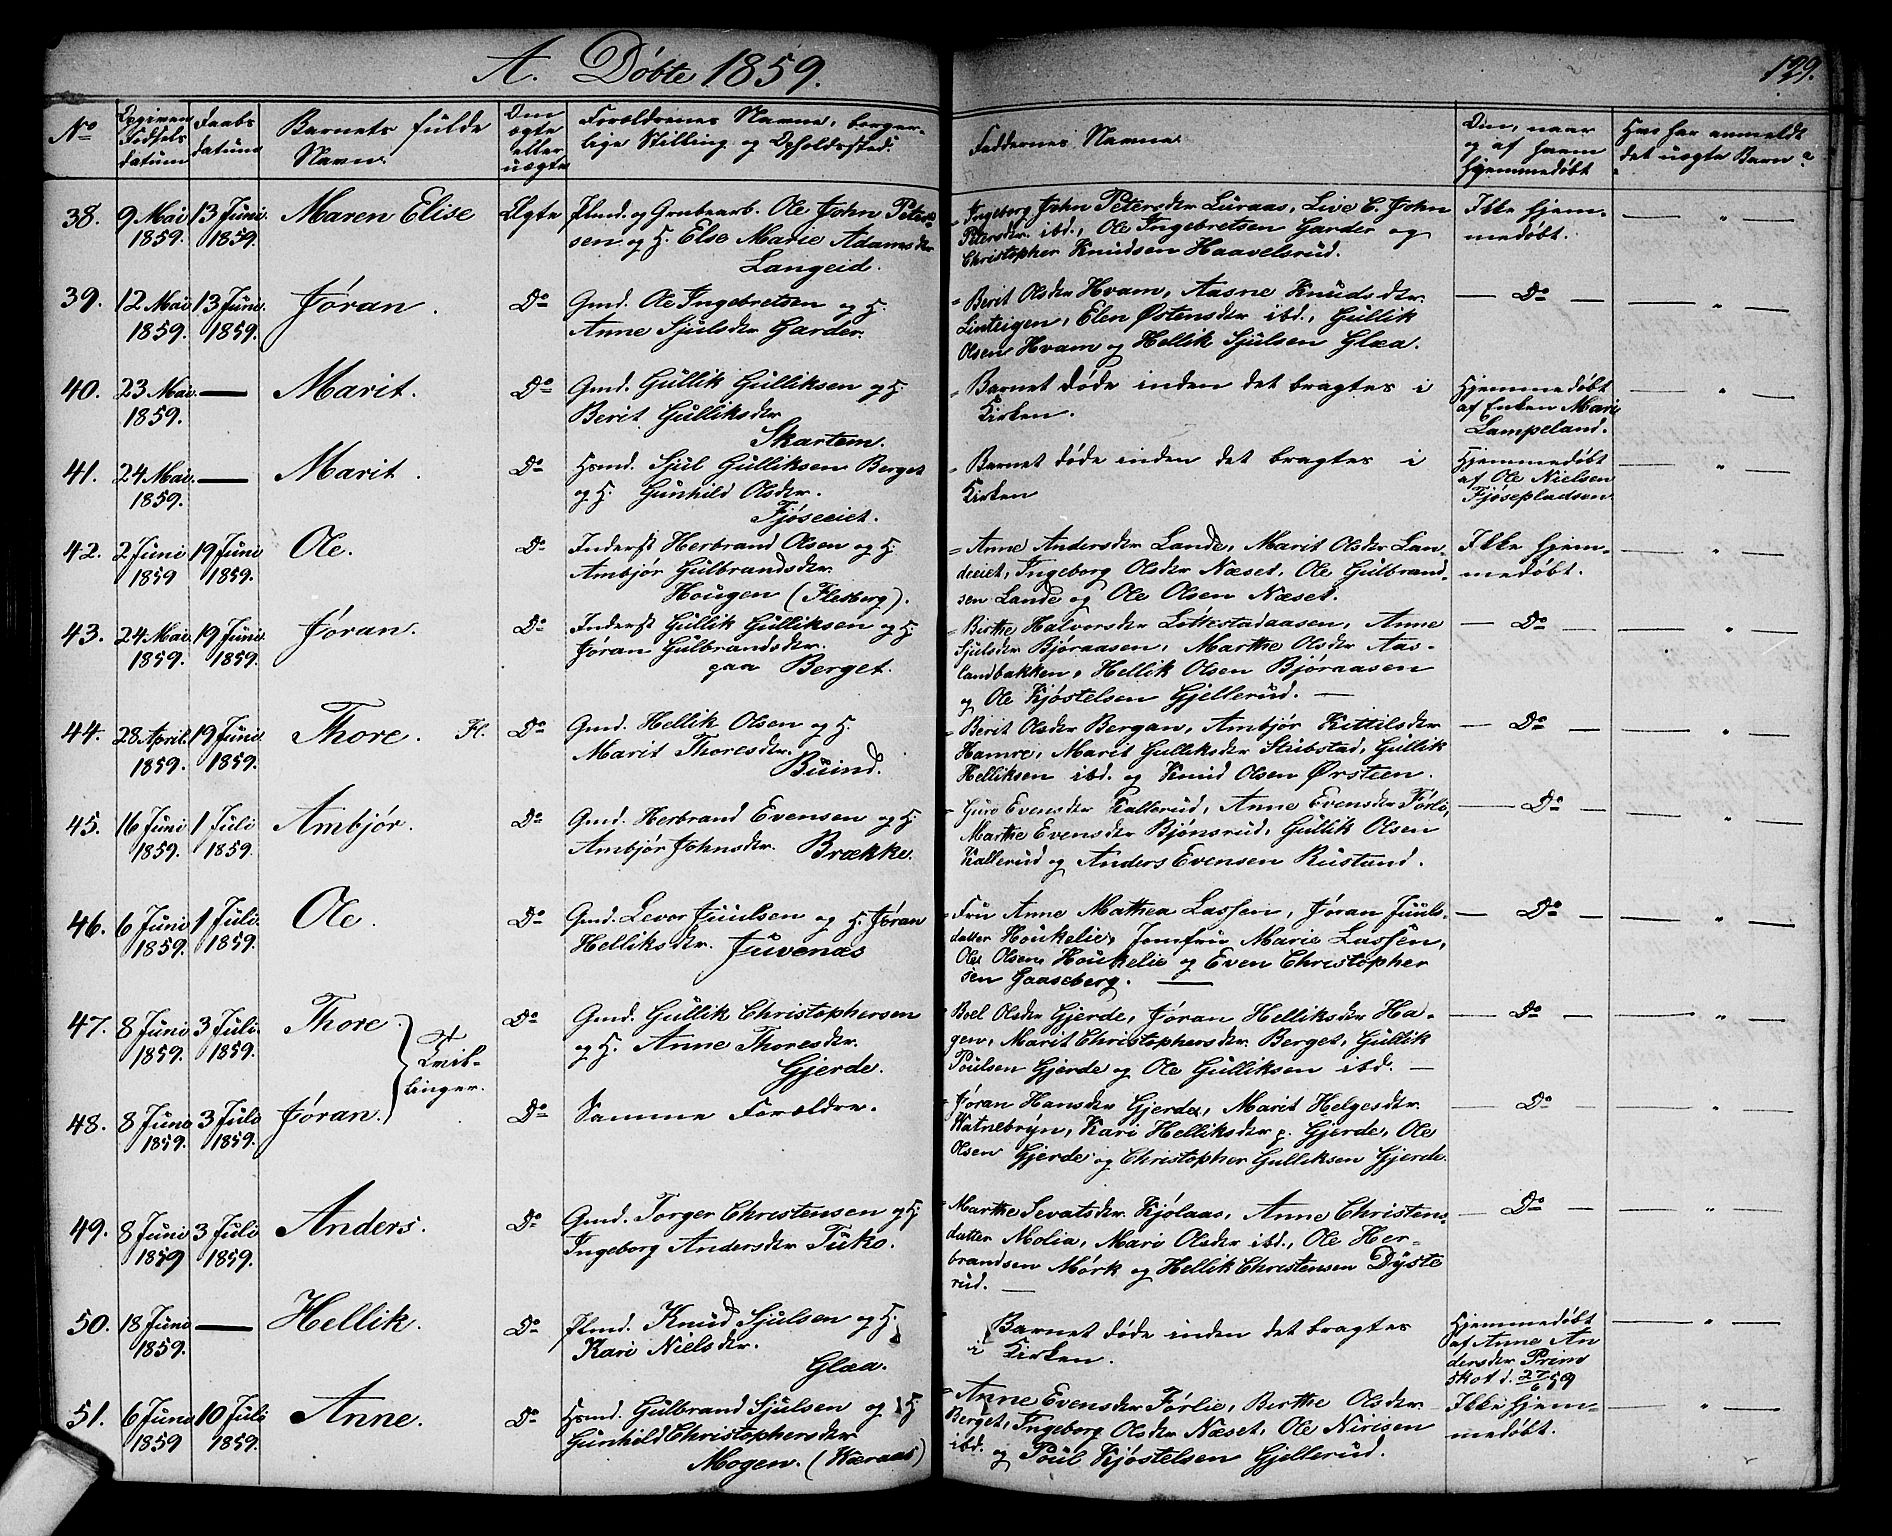 A. Døbte 1859.
129.
No
Opgiven Fødsels datum
Daabs datum
Barnets fulde Navn.
Om ægte eller uægte
Forældrenes Navne, borger-
lige Stilling og Opholdssted.
Faddernes Navne.
Om, naar og af hvem hjemmedøbt
Hvo har anmeldt det uægte Barn?
38. 9 Mai 1859. 13 Juni 1859. Maren Elise Ægte
Flmd. og Grubearb. Ole John Peter-
sen og H. Else Marie Adamsdr
Langeid.
Ingeborg John Petersdr Luraas, Live C. John
Petersdr. ibd., Ole Ingebretsen Garder og
Christopher Knudsen Haavelsrud.
Ikke hjem-
medøbt.
39. 12 Mai 1859. 13 Juni 1859. Jøran. Do
Gmd. Ole Ingebretsen og H.
Anne Sjulsdr Garder.
Berit Olsdr Hvam, Aasne Knudsdr.
Linteigen, Elen Østensdr ibd., Gullik
Olsen Hvam og Hellik Sjulsen Glæa.
Do
40. 23 Mai 1859. — Marit. Do
Gmd. Gullik Gulliksen og H.
Berit Gulliksdr
Skartem.
Barnet døde inden det bragtes i
Kirken.
Hjemmedøbt
af Enken Mari
Lampeland.
41. 24 Mai 1859. — Marit. Do
Hsmd. Sjul Gulliksen Berget
og H. Gunhild Olsdr.
Fjøseeiet.
Barnet døde inden det bragtes i
Kirken
Hjemmedøbt
af Ole Nielsen
Fjøsepladsen
42. 2 Juni 1859 19 Juni 1859. Ole. Do
Inderst Herbrand Olsen og H.
Ambjør Gulbrandsdr.
Hougen (Flesberg).
Anne Andersdr Lande, Marit Olsdr Lan-
deeiet, Ingeborg Olsdr Næset, Ole Gulbrand-
sen Lande og Ole Olsen Næset.
Ikke hjem-
medøbt.
43. 24 Mai 1859. 19 Juni 1859. Jøran. Do
Inderst Gullik Gulliksen og H.
Jøran Gulbrandsdr.
paa Berget.
Birthe Halvorsdr Løttestadaasen, Anne
Sjulsdr Bjøraasen, Marthe Olsdr Aas-
landbakken, Hellik Olsen Bjøraasen
og Ole Kjøstelsen Gjellerud. —
Do
44. 28 April 1859. 19 Juni 1859. Thore. Fl. Do
Gmd. Hellik Olsen og H.
Marit Thoresdr.
Buind.
Berit Olsdr Bergan, Ambjør Kittilsdr
Hamre, Marit Gulliksdr Stubstad, Gullik
Helliksen ibd. og Knud Olsen Ørsteen.
Do
45. 16 Juni 1859. 1 Juli 1859. Ambjør. Do
Gmd. Herbrand Evensen og H.
Ambjør Johnsdr. Brække.
Guro Evensdr Kallerud, Anne Evensdr Førli,
Marthe Evensdr Bjønsrud, Gullik Olsen
Kallerud og Anders Evensen Rustand.
Do
46. 6 Juni 1859. 1 Juli 1859. Ole. Do
Gmd. Levor Juulsen og H. Jøran
Helliksdr. Juvenæs
Fru Anne Mathea Lassen, Jøran Juuls-
datter Houkelie, Jomfru Marie Lassen,
Ole Olsen Houkelie og Even Christopher
sen Gaaseberg. —
Do
47. 8 Juni 1859. 3 Juli 1859. Thore. Do
Tvil-
linger.
Gmd. Gullik Christophersen
og H. Anne Thoresdr.
Gjerde.
Boel Olsdr Gjerde, Jøran Helliksdr Ha-
gen, Marit Christophersdr Berget, Gullik
Poulsen Gjerde og Ole Gulliksen ibd. —
Do
48. 8 Juni 1859. 3 Juli 1859. Jøran. Do
Samme Forældre.
Jøran Hansdr Gjerde, Marit Helgesdr.
Katnebryn, Kari Helliksdr p. Gjerde, Ole
Olsen Gjerde og Christopher Gulliksen Gjerde.
Do
49. 8 Juni 1859 3 Juli 1859. Anders. Do
Gmd. Torger Christensen og H.
Ingeborg Andersdr Tuko.
Marthe Sevatsdr Kjølaas, Anne Christens-
datter Molia, Mari Olsdr ibd., Ole Her-
brandsen Mørk og Hellik Christensen Dyste
rud. —
Do
50. 18 Juni 1859. — Hellik. Do
Flmd. Knud Sjulsen og H.
Kari Nielsdr.
Glæa.
Barnet døde inden det bragtes
i Kirken.
Hjemmedøbt
af Anne An
dersdr Prim
skot d. 27/6 59
51. 6 Juni 1859 10 Juli 1859. Anne. Do
Hsmd. Gulbrand Sjulsen og H
Gunhild Christophersdr
Mogen. (Kæraas)
Anne Evensdr Førlie, Berthe Olsdr
Berget, Ingeborg Olsdr Næset, Ole Nirisen
ibd. og Poul Kjøstelsen Gjellerud.
Ikke hjem-
medøbt.